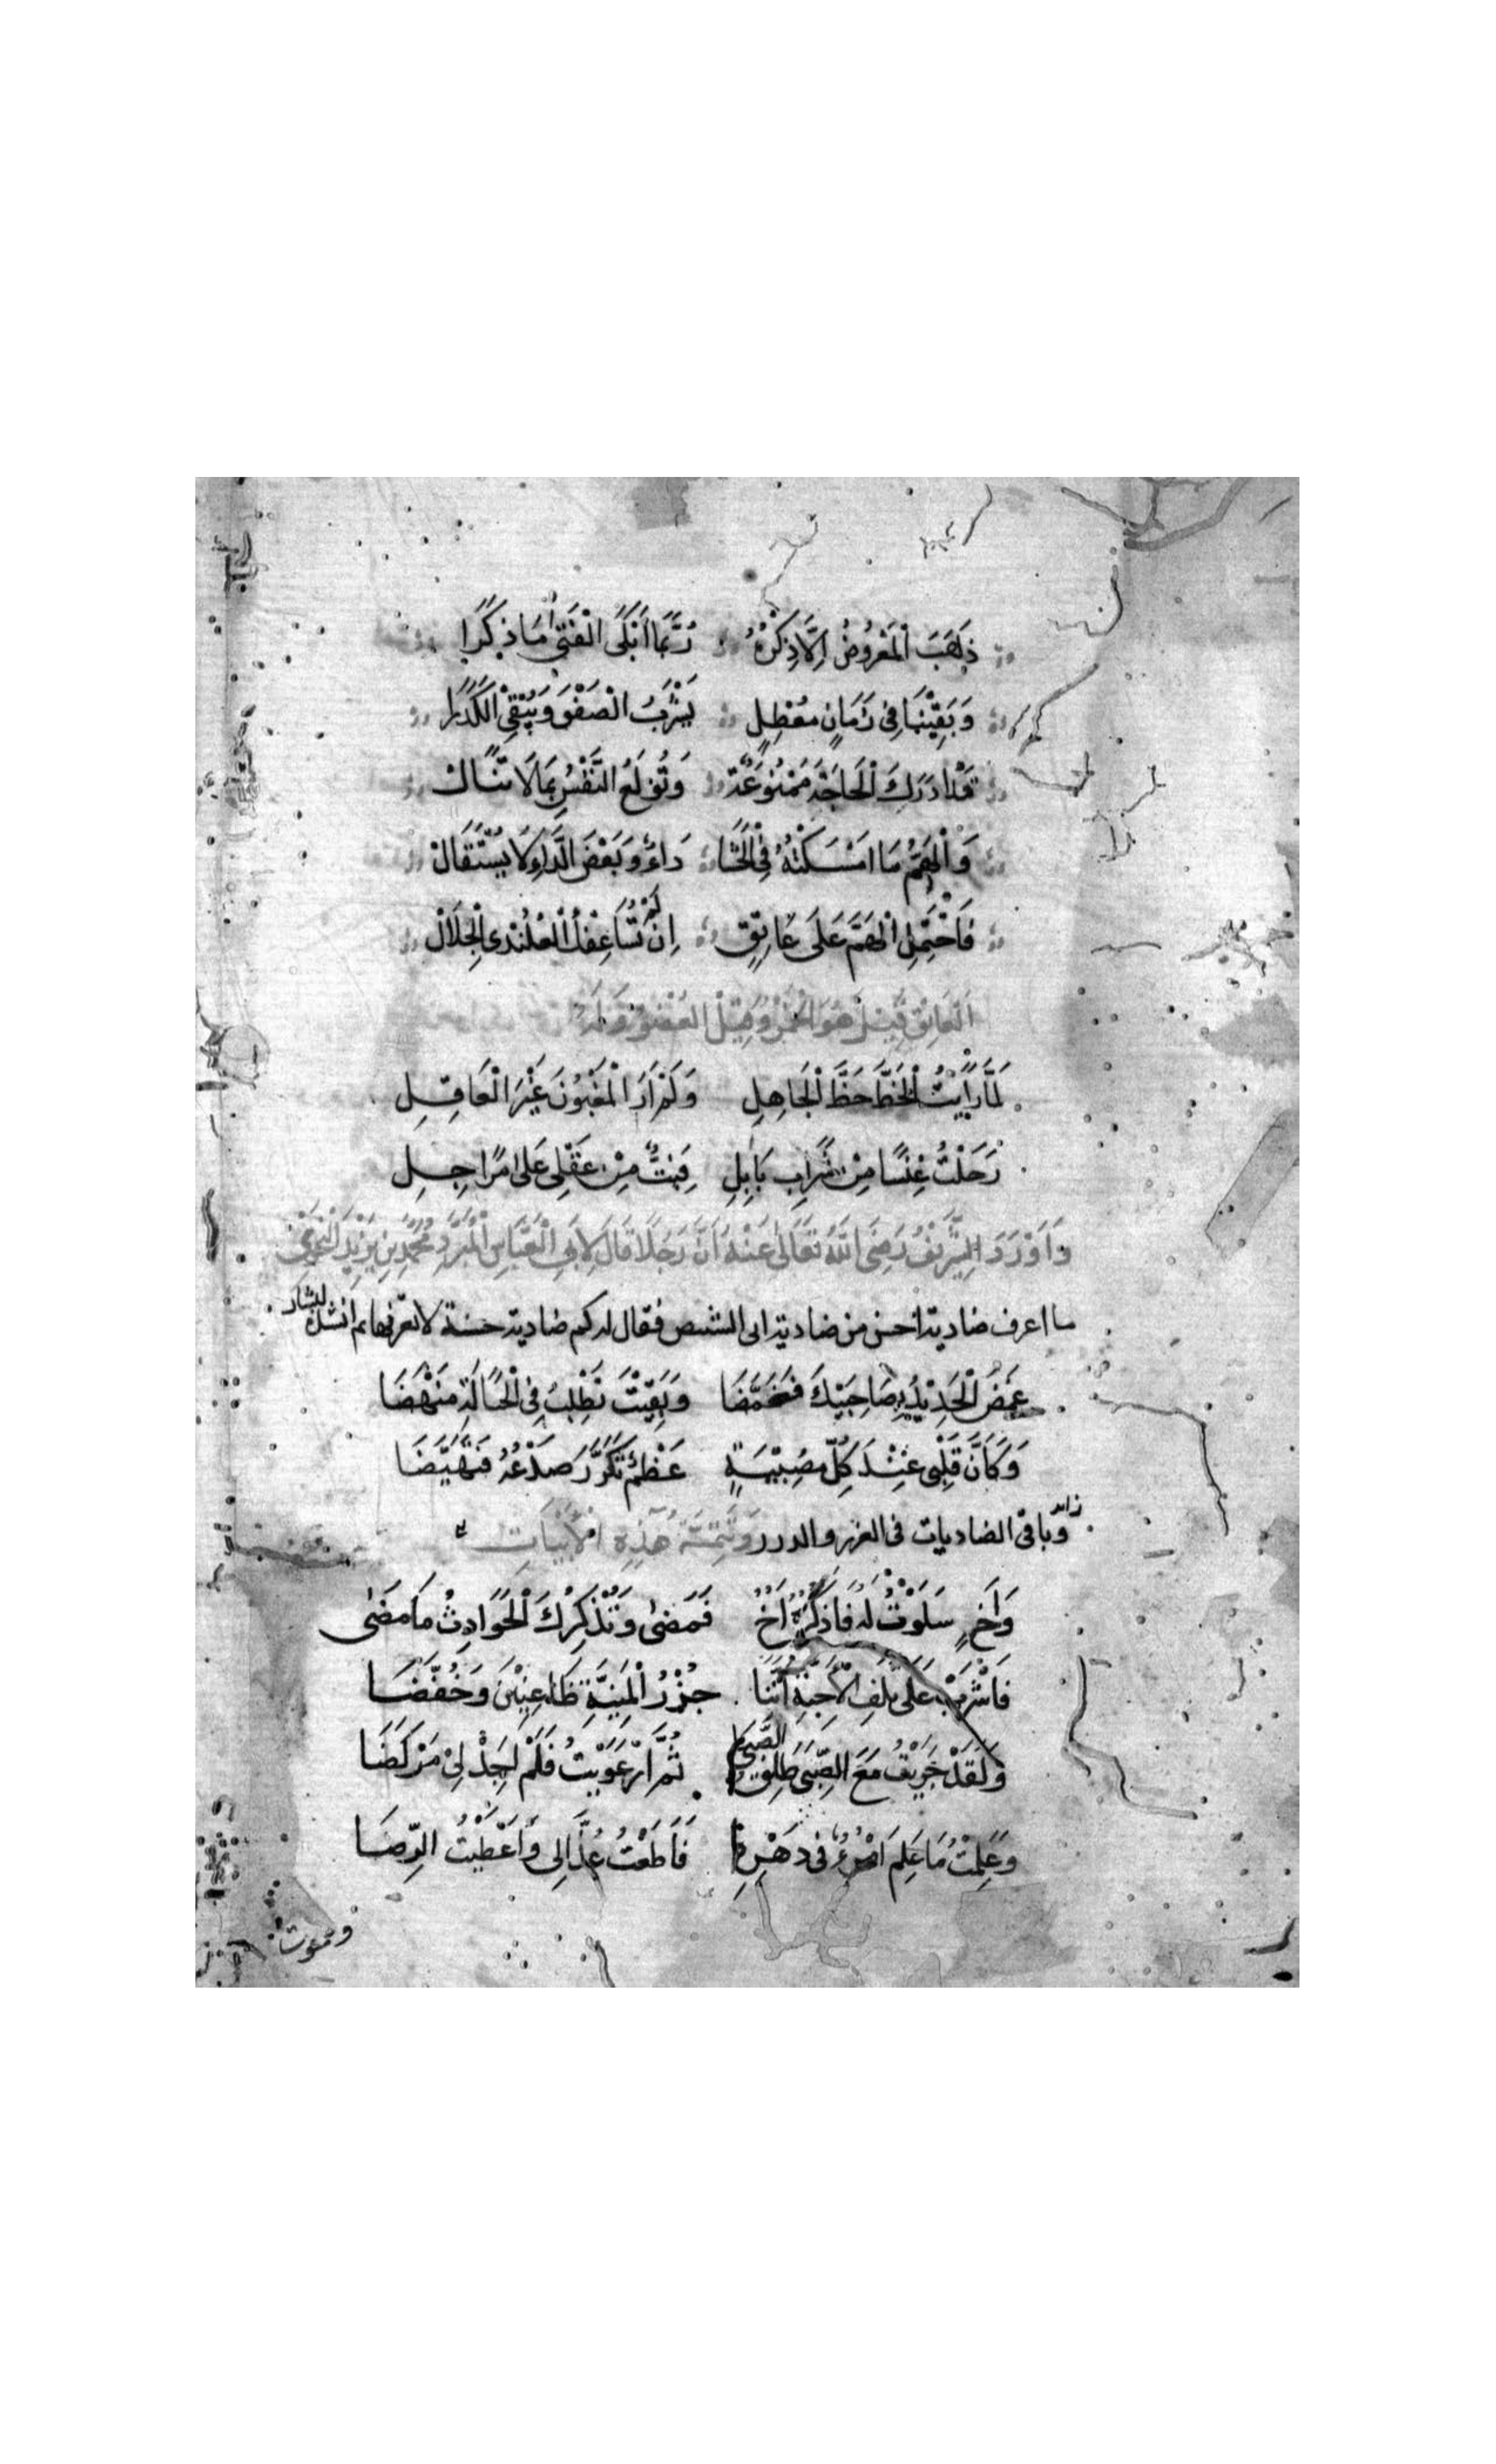 ذَهَبَ الْمَعْرُوفُ اِلَّا ذِكْرُهُ رُبَّمَا اَبْكَى الْفَتَى مَا ذَكَرَا
وَبَقِيْنَا فِى زَمَانٍ مُعْضِلٍ يَشْرَبُ الصَّفْوَ وَيُبْقِى الْكَدَرَا
قَدْ اَدْرَكَ الْحَاجَةَ مَمْنُوعَةً وَتُولَعُ النَّفْسُ بِمَا لَا تَنَالْ
وَالْهَمُّ مَا امْسَكْتَهُ فِى الْحَشَا دَاءٌ وَبَعْضَ الدَّاءِ لَا يُسْتَقَالْ
فَاحْتَمِلِ الْهَمَّ عَلَى عَاتِقٍ اِنْ لَمْ تُسَاعِفْكَ الْعَلَنْدَى الْجِلَالْ
اَلْعَاتِقُ قِيْلَ هُوَ الْخَمْرُ وَقِيْلَ الْعُضْوُ وَلَهُ
لَمَّا رَاَيْتُ الْحَظَّ حَظَّ الْجَاهِلِ وَلَمْ اَرَ الْمَغْبُونَ غَيْرَ الْعَاقِلِ
رَحَلْتُ عِنْسًا مِنْ شَرَابِ بَابِلِ فَبِتُّ مِنْ عَقْلِى عَلَى مَرَاحِلِ
وَاَوْرَدَ الشَّرِيْفُ رَضِىَ اللّٰهُ تَعَالٰى عَنْهُ اَنَّ رَجُلًا قَالَ لِاَبِى الْعَبَّاسِ الْمُبَرَّدِ مُحَمَّدِ بْنِ يَزِيْدَ النَّحْوِىِّ
ما اعرف ضادية احسن من ضادية ابى الشيص فقال له كم ضادية حسنة لا تعرفها ثم انشده لبشار
غَمَضَ الْحَدِيْدُ بِصَاحِبَيْكَ فَغَمَّضَا وَبَقِيْتَ تَطْلُبُ فِى الْحَبَالَةِ مَنْهَضَا
وَكَاَنَّ قَلْبِى عِنْدَ كُلِّ مُصِيْبَةٍ عَظْمٌ تَكَرَّرَ صَدْعُهُ فَتَهَيَّضَا
وباقى الضاديات فى الغرر والدرر وَتَتِمَّةُ هٰذِهِ الْاَبْيَاتِ
وَاَخٍ سَلَوْتُ لَهُ فَاَذْكَرَهُ اَخٌ فَمَضٰى وَتُذْكِرُكَ الْحَوَادِثُ مَا مَضٰى
فَاشْرَبْ عَلَى تَلَفِ الْاَحِبَّةِ اِنَّنَا جُزْرُ الْمَنِيَّةِ ظَاعِنِيْنَ وَخُفَّضَا
وَلَقَدْ جَرَيْتُ مَعَ الصِّبَى طَلْقَ الصِّبَى ثُمَّ ارْعَوَيْتُ فَلَمْ اَجِدْ لِى مَرْكَضَا
وَعَلِمْتُ مَا عَلِمَ امْرُؤٌ فِى دَهْرِهِ فَاَطَعْتُ عُذَّالِى وَاَعْطَيْتُ الرِّضَا